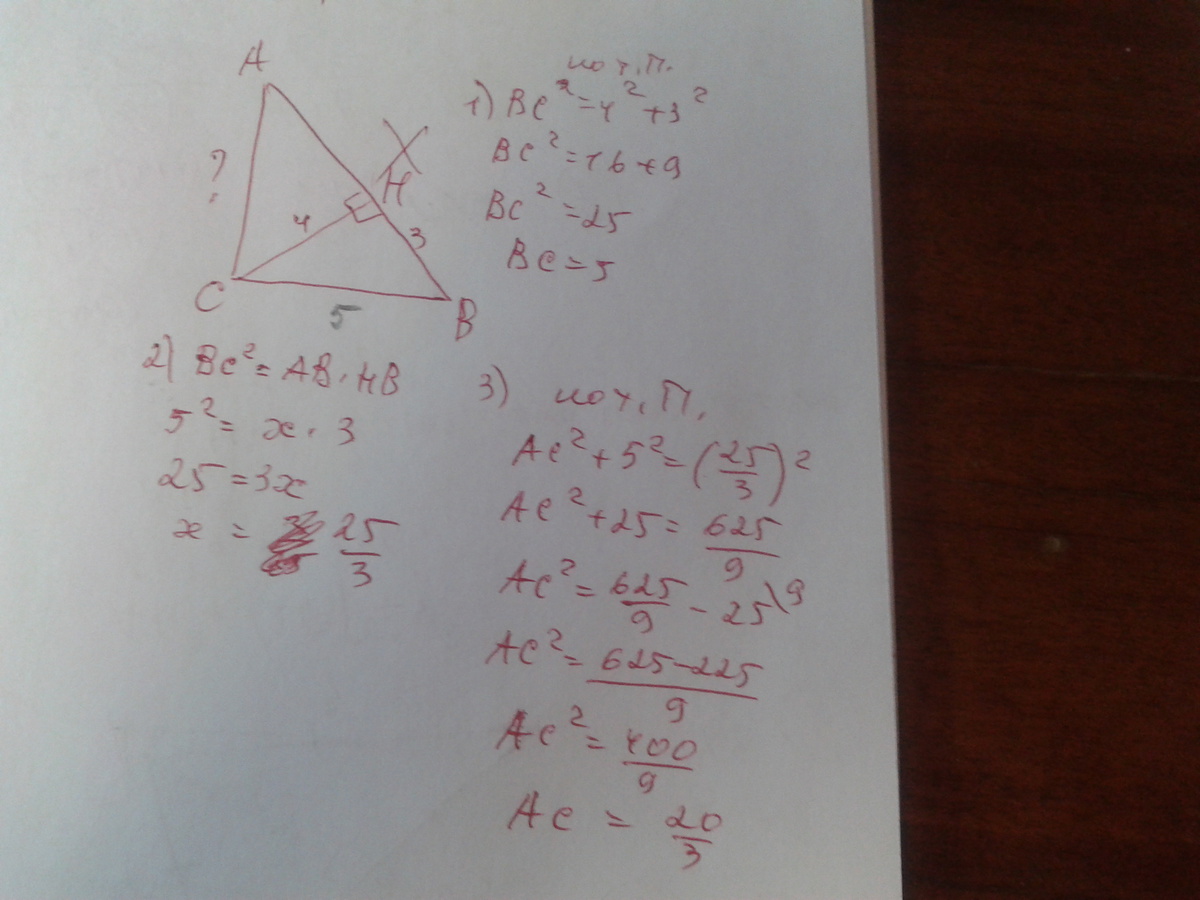 A
?
4
H
3
C
5
B
по т. П.
1) BC² = 4² + 3²
BC² = 16 + 9
BC² = 25
BC = 5
2) BC² = AB · HB
5² = x · 3
25 = 3x
x = 25/3
3) по т. П.
AC² + 5² = (25/3)²
AC² + 25 = 625/9
AC² = 625/9 - 25\9
AC² = 625-225/9
AC² = 400/9
AC = 20/3